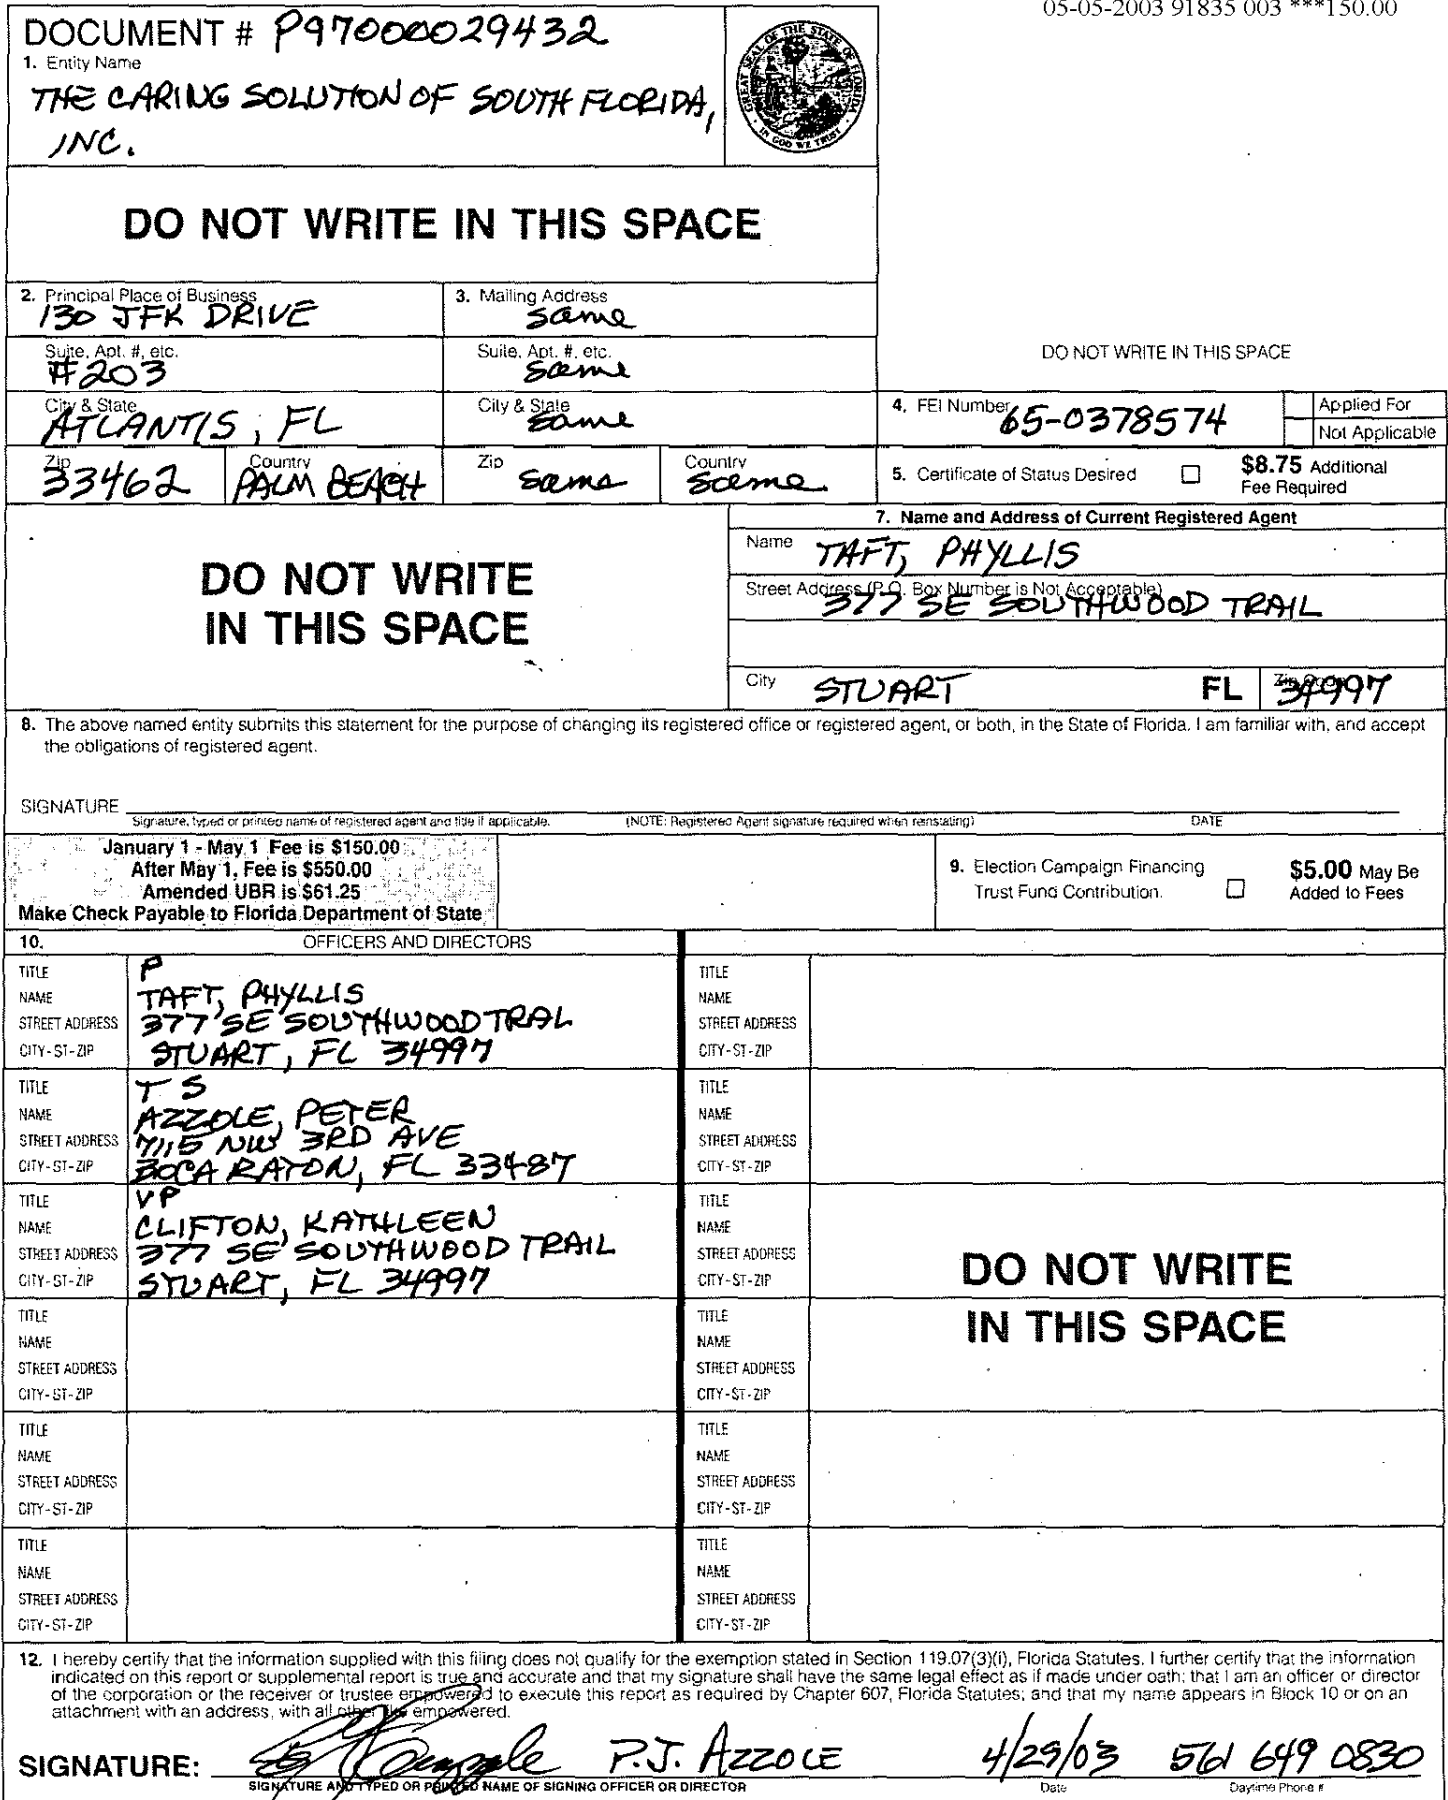 05-05-2003 91835 003 ***150.00
DOCUMENT # P97000029432
1. Entity Name
THE CARING SOLUTION OF SOUTH FLORIDA,
INC.
GREAT SEAL OF THE STATE OF FLORIDA
IN GOD WE TRUST
DO NOT WRITE IN THIS SPACE
2. Principal Place of Business
130 JFK DRIVE
3. Mailing Address
same
Suite, Apt. #, etc.
#203
Suite, Apt. #, etc.
same
DO NOT WRITE IN THIS SPACE
City & State
ATLANTIS, FL
City & State
same
4. FEI Number
65-0378574
Applied For
Not Applicable
Zip
33462
Country
PALM BEACH
Zip
same
Country
same
5. Certificate of Status Desired
$8.75 Additional
Fee Required
DO NOT WRITE
IN THIS SPACE
7. Name and Address of Current Registered Agent
Name TAFT, PHYLLIS
Street Address (P.O. Box Number is Not Acceptable)
377 SE SOUTHWOOD TRAIL
City STUART FL Zip Code 34997
8. The above named entity submits this statement for the purpose of changing its registered office or registered agent, or both, in the State of Florida. I am familiar with, and accept
the obligations of registered agent.
SIGNATURE
Signature, typed or printed name of registered agent and title if applicable. (NOTE: Registered Agent signature required when reinstating) DATE
January 1 - May 1 Fee is $150.00
After May 1, Fee is $550.00
Amended UBR is $61.25
Make Check Payable to Florida Department of State
9. Election Campaign Financing
Trust Fund Contribution.
$5.00 May Be
Added to Fees
10. OFFICERS AND DIRECTORS
TITLE P
NAME TAFT, PHYLLIS
STREET ADDRESS 377 SE SOUTHWOOD TRAL
CITY-ST-ZIP STUART, FL 34997
TITLE
NAME
STREET ADDRESS
CITY-ST-ZIP
TITLE T S
NAME AZZOLE, PETER
STREET ADDRESS 7115 NW 3RD AVE
CITY-ST-ZIP BOCA RATON, FL 33487
TITLE
NAME
STREET ADDRESS
CITY-ST-ZIP
TITLE VP
NAME CLIFTON, KATHLEEN
STREET ADDRESS 377 SE SOUTHWOOD TRAIL
CITY-ST-ZIP STUART, FL 34997
TITLE
NAME
STREET ADDRESS
CITY-ST-ZIP
DO NOT WRITE
IN THIS SPACE
TITLE
NAME
STREET ADDRESS
CITY-ST-ZIP
TITLE
NAME
STREET ADDRESS
CITY-ST-ZIP
TITLE
NAME
STREET ADDRESS
CITY-ST-ZIP
TITLE
NAME
STREET ADDRESS
CITY-ST-ZIP
TITLE
NAME
STREET ADDRESS
CITY-ST-ZIP
TITLE
NAME
STREET ADDRESS
CITY-ST-ZIP
12. I hereby certify that the information supplied with this filing does not qualify for the exemption stated in Section 119.07(3)(i), Florida Statutes. I further certify that the information
indicated on this report or supplemental report is true and accurate and that my signature shall have the same legal effect as if made under oath; that I am an officer or director
of the corporation or the receiver or trustee empowered to execute this report as required by Chapter 607, Florida Statutes; and that my name appears in Block 10 or on an
attachment with an address, with all other like empowered.
SIGNATURE: P.J. AZZOLE 4/29/03 561 649 0830
SIGNATURE AND TYPED OR PRINTED NAME OF SIGNING OFFICER OR DIRECTOR Date Daytime Phone #